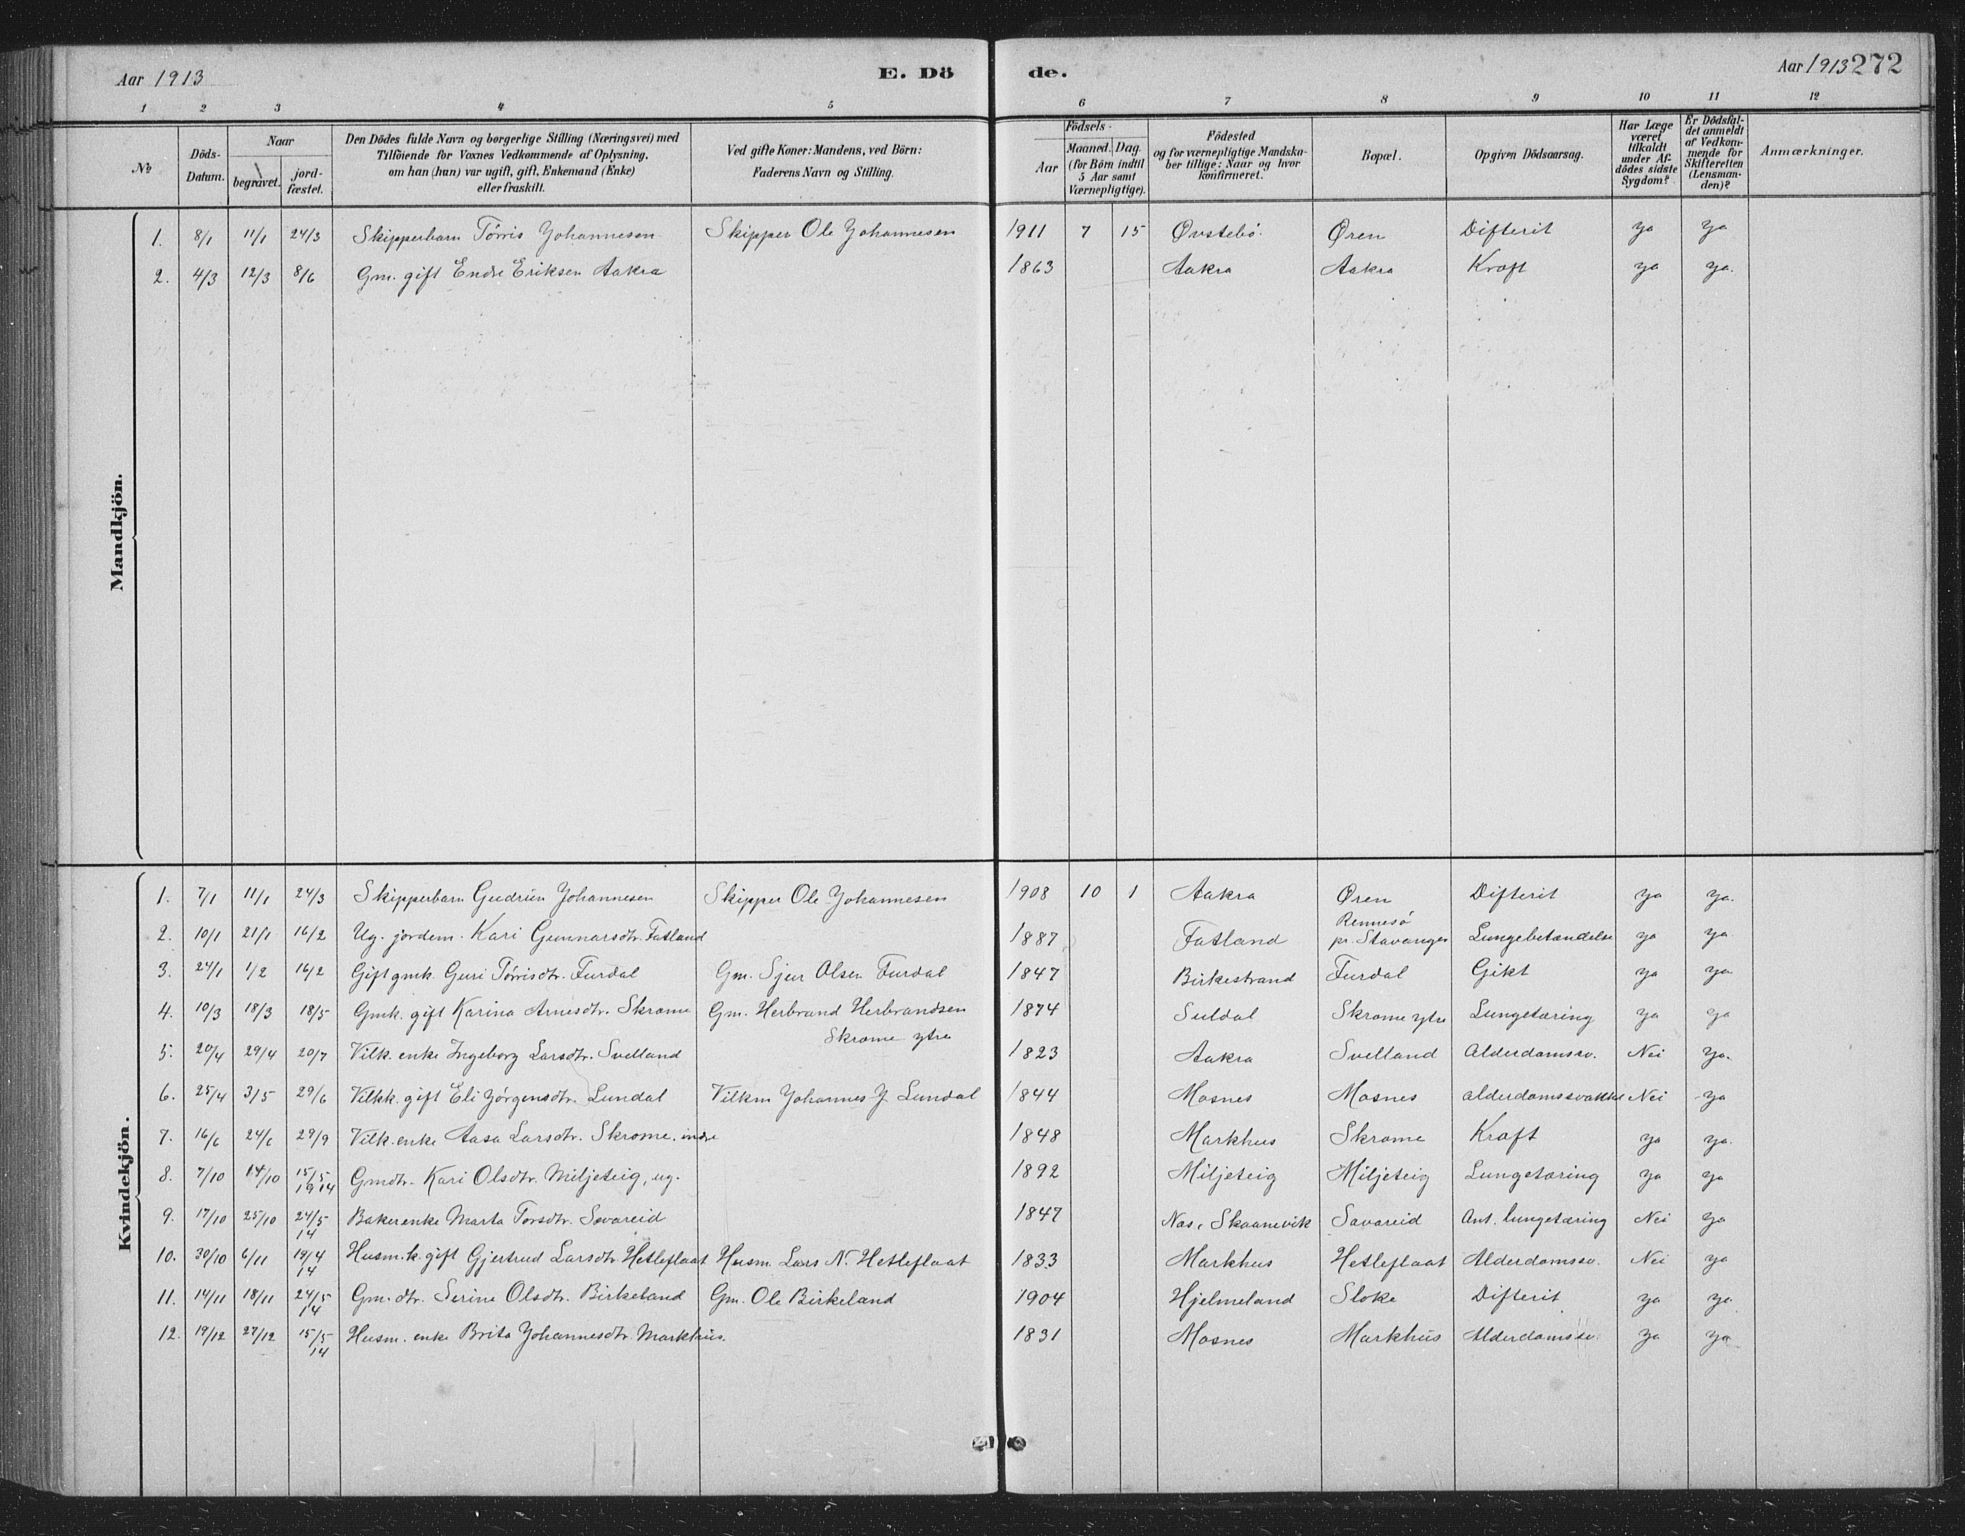 Aar 1913 E. Dö de. Aar 1913 272
1 2 3 4 5 6 7 8 9 10 11 12
№ Döds-Datum. Naar begravet. jord-fæstet. Den Dödes fulde Navn og borgerlige Stilling (Næringsvei) med Tilföiende for Voxnes Vedkommende af Oplysning, om han (hun) var ugift, gift, Enkemand (Enke) eller fraskilt. Ved gifte Koner: Mandens, ved Börn: Faderens Navn og Stilling. Födsels- Aar Maaned. Dag (for Börn indtil 5 Aar samt Værnepligtige). Födested og for værnepligtige Mandskaber tillige: Naar og hvor konfirmeret. Bopæl. Opgiven Dödsaarsag. Har Læge været tilkaldt under Afdödes sidste Sygdom? Er Dödsfaldet anmeldt af Vedkommende for Skifteretten (Lensmanden)? Anmærkninger.
Mandkjön.
1. 8/1 11/1 24/3 Skipperbarn Tørris Johannesen Skipper Ole Johannesen 1911 7 15 Øvstebö. Øren Difterit ja ja
2. 4/3 12/3 8/6 Gm. gift Endre Eriksen Aakra 1863 Aakra Aakra Kræft ja ja.
Kvindekjön.
1. 7/1 11/1 24/3 Skipperbarn Gudrun Johannesen Skipper Ole Johannesen 1908 10 1 Aakra Øren Difterit ja ja.
2. 10/1 21/1 16/2 Ug. jordem. Kari Gunnarsdtr. Fatland 1887 Fatland Rennesö pr. Stavanger Lungebetændelse ja ja.
3. 24/1 1/2 16/2 Gift gmk. Guri Tørrisdtr. Furdal Gm. Sjur Olsen Furdal 1847 Birkestrand Furdal Gikt ja ja
4. 10/3 18/3 18/5 Gmk. gift Karina Arnesdtr. Skrome Gm. Herbrand Herbrandsen Skrome ytre 1874 Suldal Skrome ytre Lungetæring ja ja
5. 20/4 29/4 20/7 Vilk. enke Ingeborg Larsdtr. Svelland 1823 Aakra Svelland Alderdomssv. Nei ja.
6. 25/4 3/5 29/6 Vilkk. gift Eli Jørgensdtr. Lundal Vilkm Johannes J. Lundal 1844 Mosnes Mosnes alderdomssvakke Nei ja
7. 16/6 24/6 29/9 Vilk. enke Aasa Larsdtr. Skrome, indre 1848 Markhus Skrome Kræft ja ja.
8. 7/10 14/10 15/5 1914 Gmdtr. Kari Olsdtr. Miljeteig, ug. 1892 Miljeteig Miljeteig Lungetæring ja ja
9. 17/10 25/10 24/5 14 Bakerenke Marta Torsdtr. Sævareid 1847 Næs, Skaanevik Sævareid Ant. lungetæring Nei ja
10. 30/10 6/11 19/4 14 Husm.k. gift Gjertrud Larsdtr. Hetleflaat Husm. Lars N. Hetleflaat 1833 Markhus Hetleflaat Alderdomssv. Nei ja
11. 14/11 18/11 24/5 14 Gm. dtr. Serine Olsdtr. Birkeland Gm. Ole Birkeland 1904 Hjelmeland Sloke Difterit ja ja.
12. 19/12 27/12 15/5 14 Husm. enke Brita Johannesdtr. Markhus. 1831 Mosnes Markhus Alderdomssv. ja ja